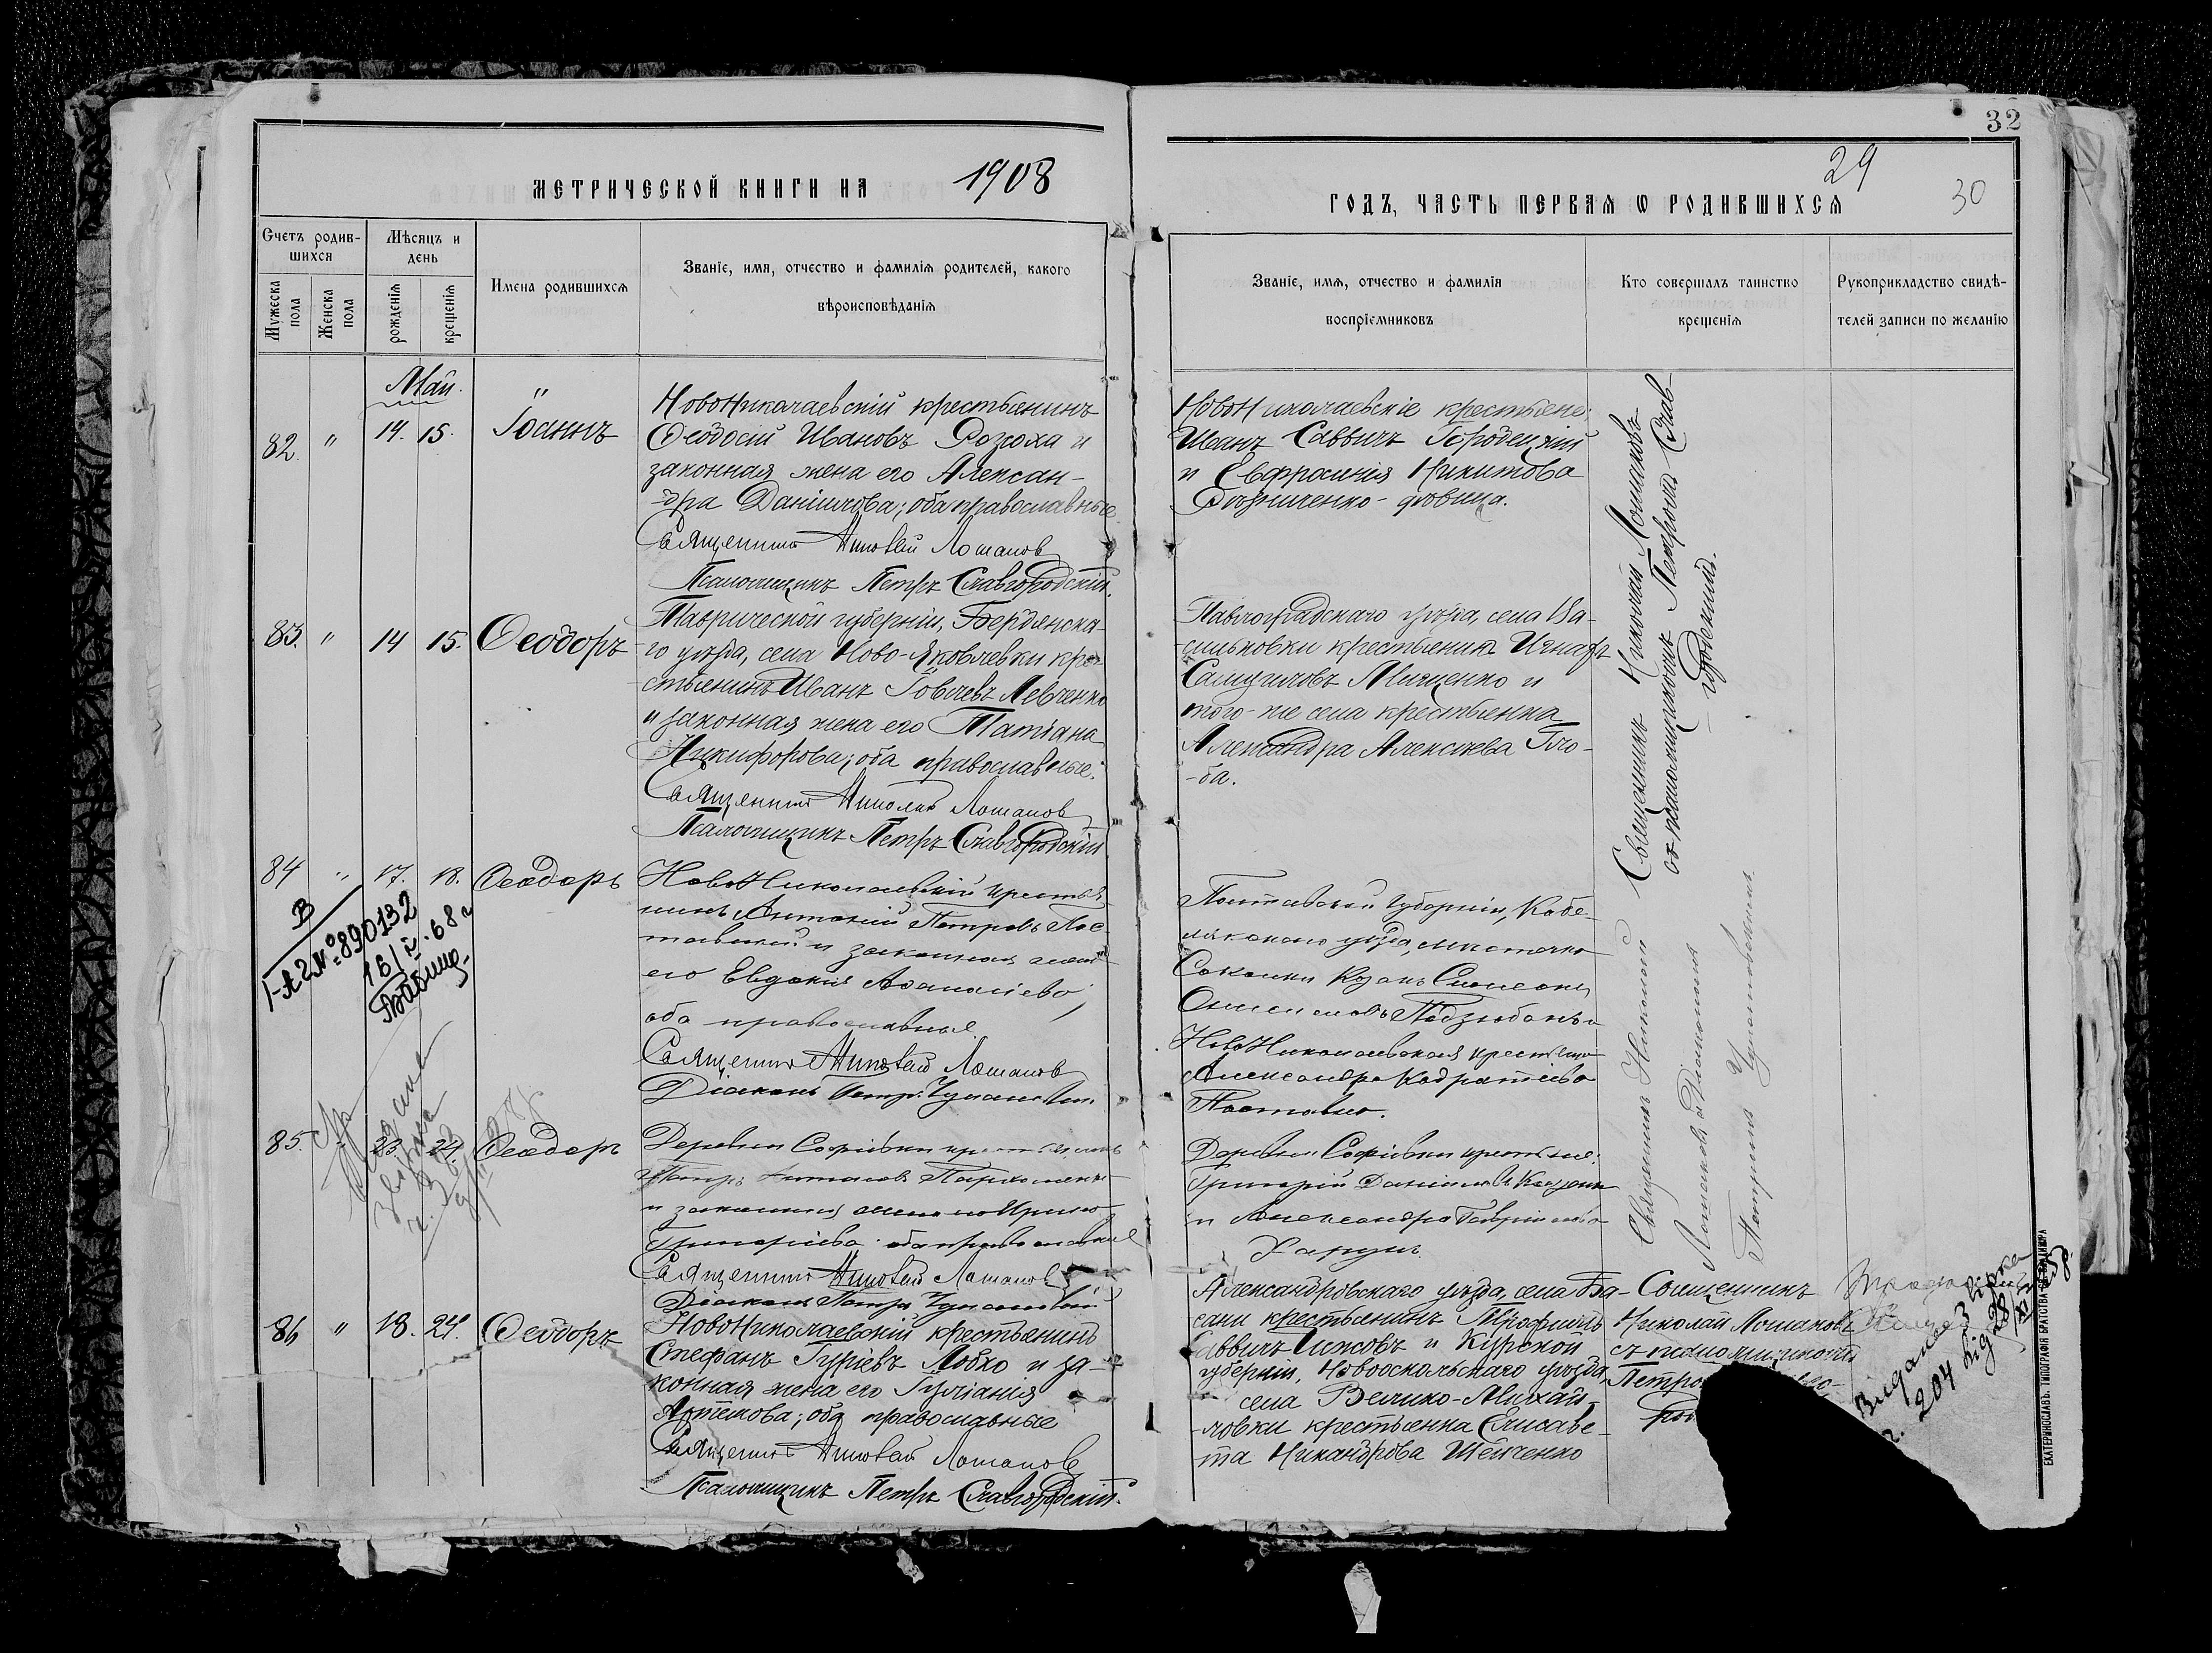 32
МЕТРИЧЕСКОЙ КНИГИ НА 1908
29
30
ГОДЪ, ЧАСТЬ ПЕРВАЯ Ѡ РОДИВШИХСЯ
Счетъ родив-
шихся
Мѣсяцъ и
день
Имена родившихся
Званіе, имя, отчество и фамилія родителей, какого
вѣроисповѣданія
Мужеска
пола
Женска
пола
рожденія
крещенія
Званіе, имя, отчество и фамилія
воспріемниковъ
Кто совершалъ таинство
крещенія
Рукоприкладство свидѣ-
телей записи по желанію
Май.
82. " 14. 15. Іоаннъ
НовоНиколаевскій крестьянинъ
Ѳеодосій Ивановъ и
законная жена его Алексан-
-дра Даніилова; оба православные
Священникъ Николай Лошаковъ
Псаломщикъ Петръ Славгородскій.
НовоНиколаевскіе крестьяне:
Иванъ Саввичъ Городецкій
и Евфросинія Никитова
девица.
Священникъ Николай Лошаковъ
съ псаломщикомъ Петромъ Слав-
-городскимъ.
83. " 14 15. Ѳеодоръ
Таврической губерніи, Бердянска-
-го уѣзда, села Ново-Яковлевки кре-
стьянинъ Иванъ Іовлевъ Левченко
и законная жена его Татіана
Никифорова; оба православные.
Священникъ Николай Лошаковъ
Псаломщикъ Петръ Славгородскій
Павлоградскаго уѣзда, села Ва-
-сильковки крестьянинъ Игнатъ
Самуиловъ Мищенко и
того-же села крестьянка
Александра Алексѣева Гло-
-ба.
84 " 17. 18. Ѳеодоръ
НовоНиколаевскій крестья
нинъ Антоній Петровъ Пос-
и законная жена
его Евдокія Аѳанасіева;
оба православные
Священникъ Николай Лошаковъ
Діаконъ Петръ
Полтавской губерніи, Кобе-
лякскаго уѣзда, мѣстечка
Соколки Козакъ Симеонъ
Онисимовъ и
НовоНиколаевская крестьянка
Александра Кодратіева
Священникъ Николай
Лошаковъ съ Діакономъ
Петромъ
В
I-А2 №890132
16/V.68г
85. " 23. 24. Ѳеодоръ
Деревни Софіевки крестьянинъ
Петръ Пархоменко
и законная жена его Ирина
Григоріева оба православные
Священникъ Николай Лошаковъ
Діаконъ Петръ
Деревни Софіевки крестьяне:
Григорій Даніиловъ
и Александра Гавріилова
86 " 18. 24. Ѳеодоръ
НовоНиколаевскій крестьянинъ
Стефанъ Гуріевъ Лобко и за-
конная жена его Іуліанія
Артемова; оба православные
Священникъ Николай Лошаковъ
Псаломщикъ Петръ Славгородскій.
Александровскаго уѣзда, села Ба-
сани крестьянинъ Трофимъ
Саввичъ Чижовъ и Курской
губерніи, Новооскольскаго уѣзда,
села Велико-Михай-
-ловки крестьянка Елисаве-
та Никандрова Шевченко
Священникъ
Николай Лошаковъ
съ псаломщикомъ
Видано
204 від 28/XI
ЕКАТЕРИНОСЛАВЪ. ТИПОГРАФІЯ БРАТСТВА СВ. ВЛАДИМІРА